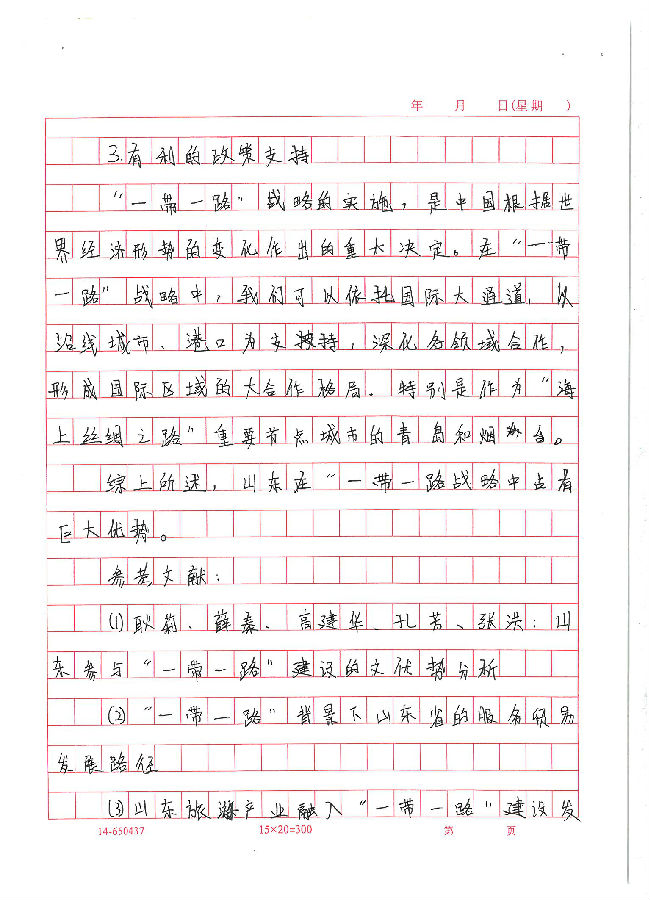 年 月 日(星期 )
3.有利的政策支持
“一带一路”战略的实施，是中国根据世
界经济形势的变化作出的重大决定。在“一带
一路”战略中，我们可以依托国际大通道，以
沿线城市、港口为支持，深化各领域合作，
形成国际区域的大合作格局．特别是作为“海
上丝绸之路”重要节点城市的青岛和烟台。
综上所述，山东在“一带一路战略中占有
巨大优势。
参考文献：
(1)耿菊、薛桑、高建华、孔芳、张洪：山
东参与“一带一路”建设的文优势分析
(2)“一带一路”背景下山东省的服务贸易
发展路径
(3)山东旅游产业融入“一带一路”建设发
14-650437 15×20=300 第 页